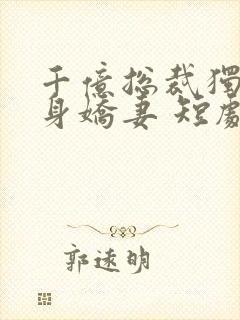 千億總裁獨
身嬌妻 短劇
郭遠明